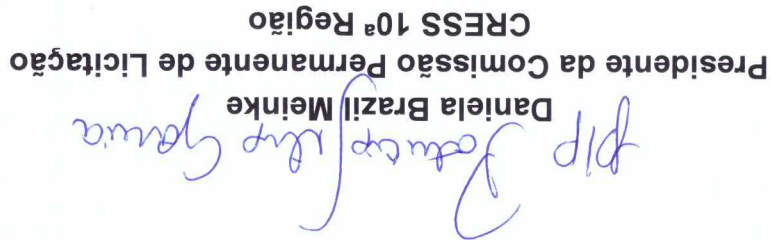 p/p Patrícia Silva Garcia
Daniela Brazil Meinke
Presidente da Comissão Permanente de Licitação
CRESS 10ª Região